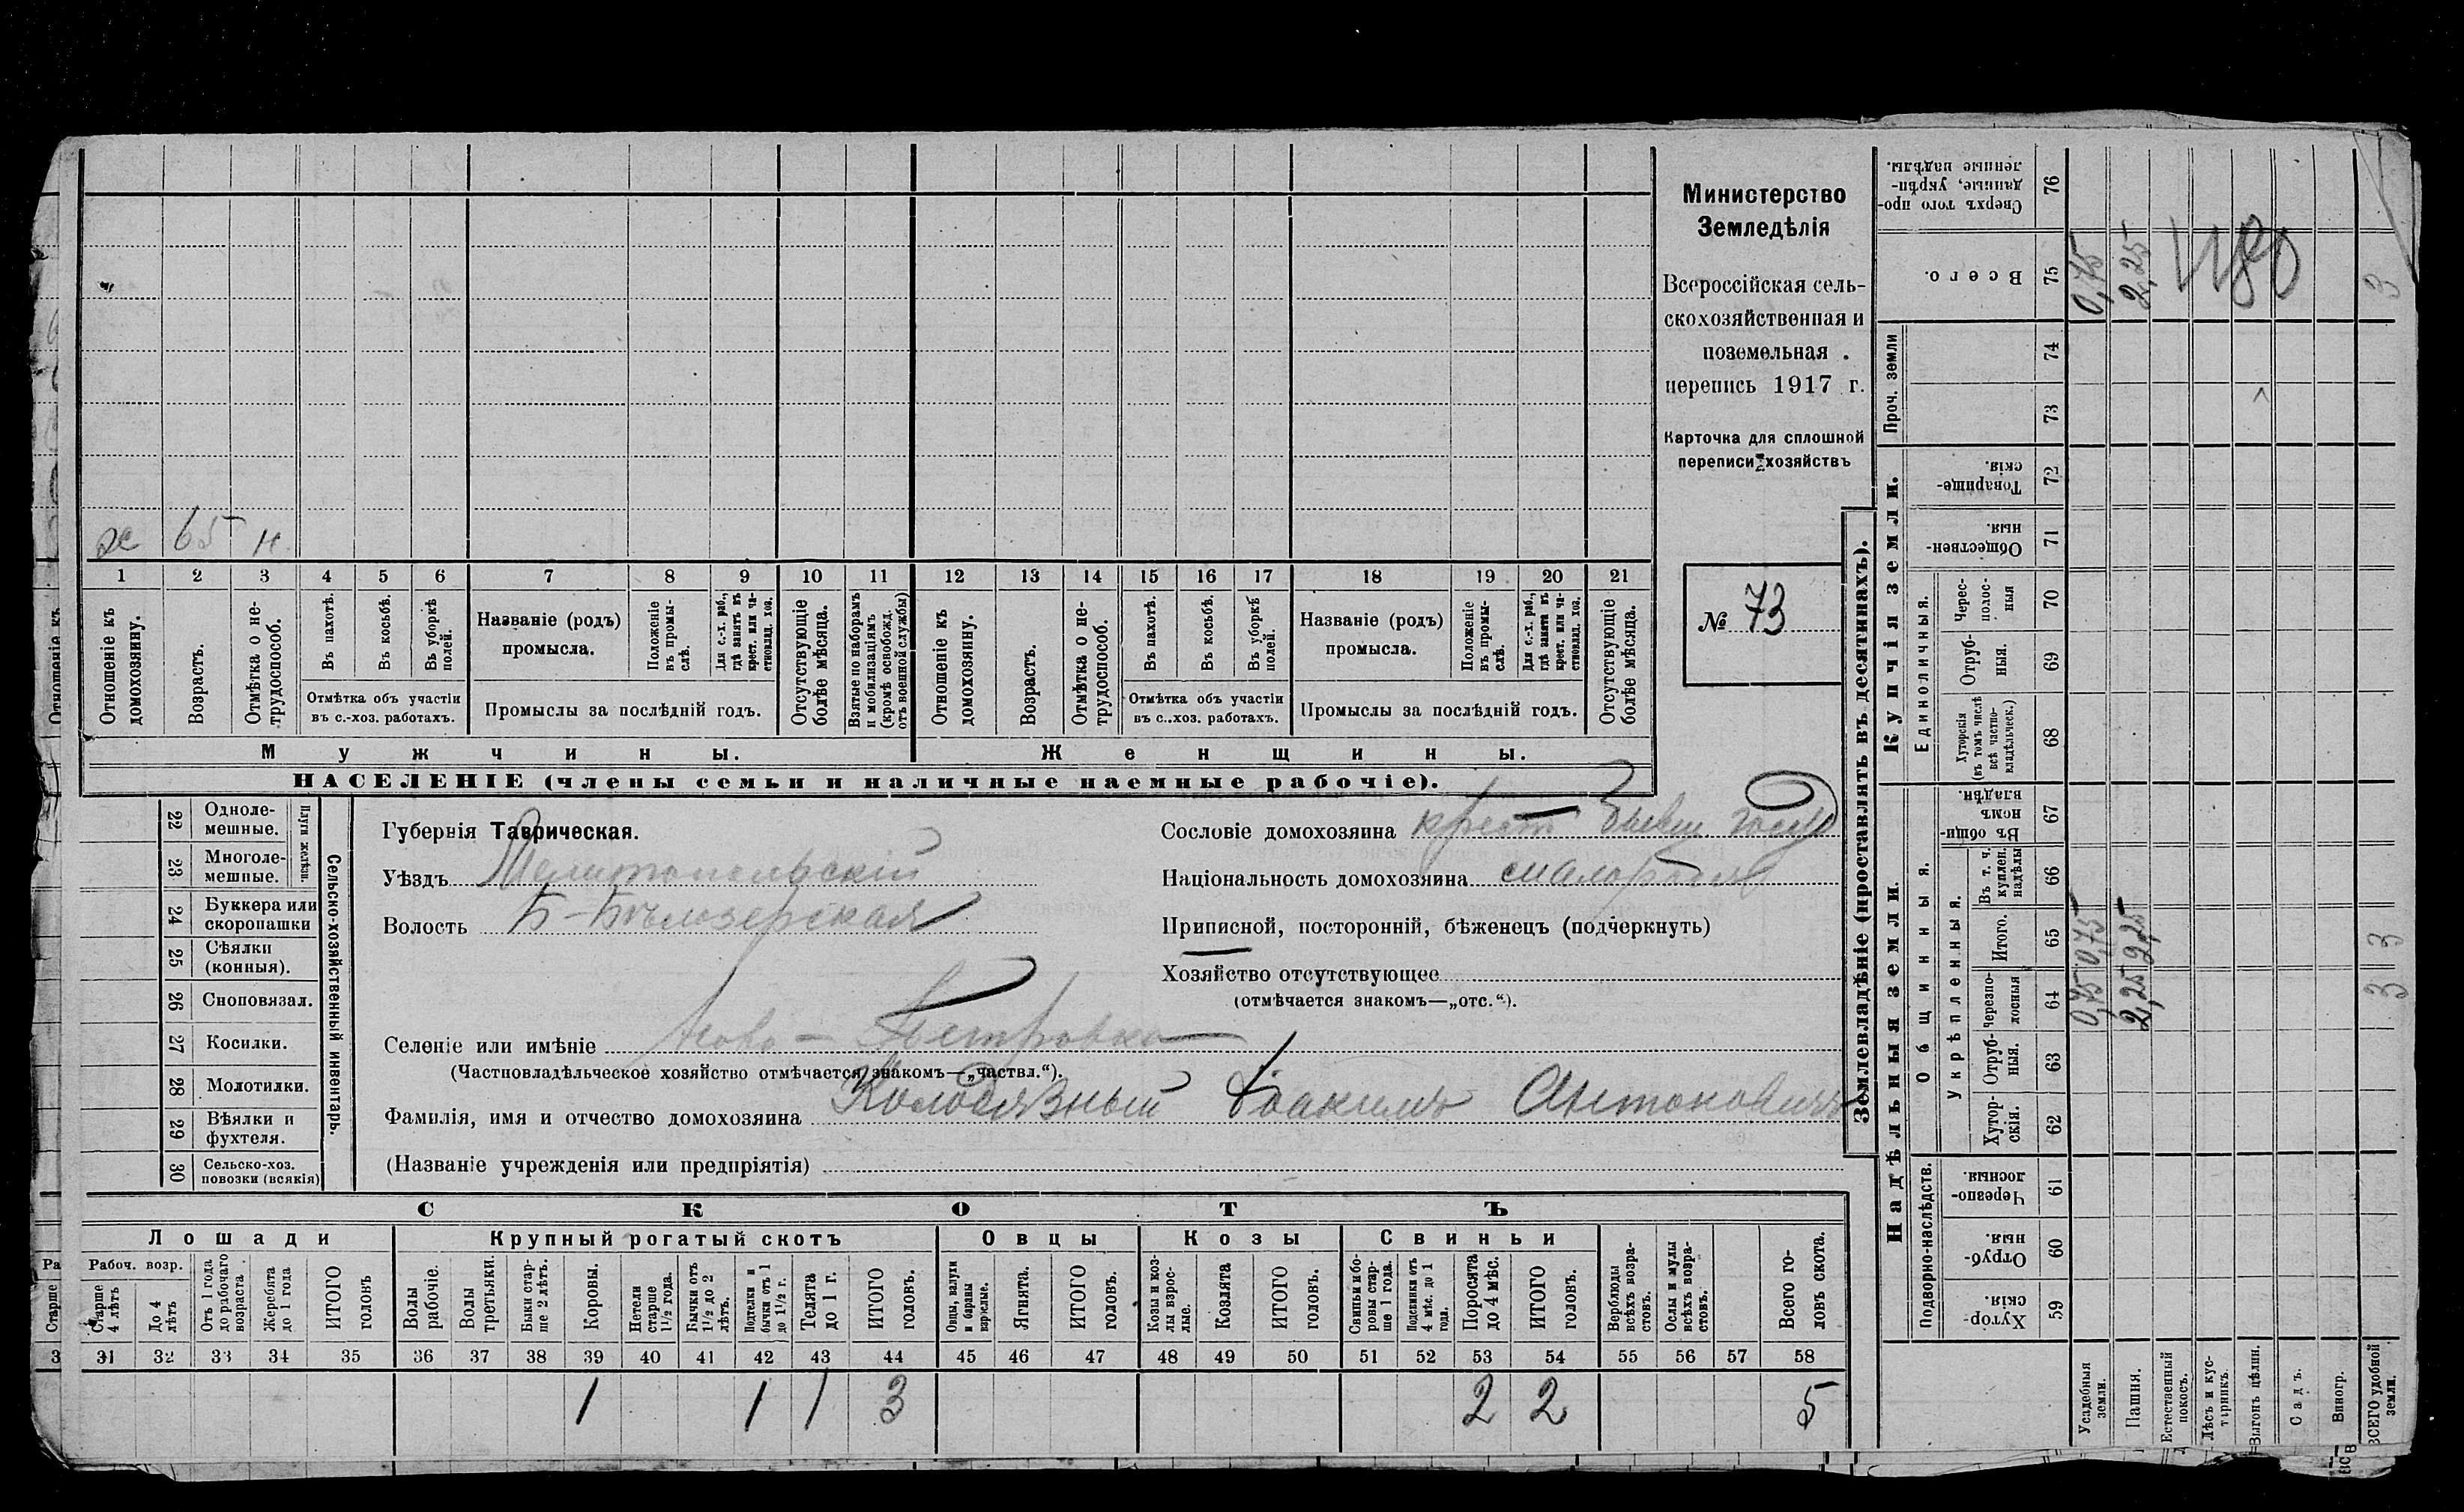 Министерство
Земледѣлія
Всероссійская сель-
скохозяйственная и
поземельная
перепись 1917 г.
Карточка для сплошной
переписи хозяйствъ
№ 73
х 65 н.
1 2 3 4 5 6 7 8 9 10 11 12 13 14 15 16 17 18 19 20 21
Отношеніе къ домохозяину.
Возрастъ.
Отмѣтка о не-трудоспособ.
Въ пахотѣ.
Въ косьбѣ.
Въ уборкѣ полей.
Отмѣтка объ участіи
въ с.-хоз. работахъ.
Названіе (родъ)
промысла.
Положеніе въ промы-слѣ.
Для с.-х. раб., гдѣ занятъ въ крест. или ча-стновлад. хоз.
Промыслы за послѣдній годъ.
Отсутствующіе болѣе мѣсяца.
Взятые по наборамъ и мобилизаціямъ (кромѣ освобожд. отъ военной службы)
Отношеніе къ домохозяину.
Возрастъ.
Отмѣтка о не-трудоспособ.
Въ пахотѣ.
Въ косьбѣ.
Въ уборкѣ полей.
Отмѣтка объ участіи
въ с..хоз. работахъ.
Названіе (родъ)
промысла.
Положеніе въ промы-слѣ.
Для с.-х. раб., гдѣ занята въ крест. или ча-стновлад. хоз.
Промыслы за послѣдній годъ.
Отсутствующіе болѣе мѣсяца.
Мужчины.
Женщины.
НАСЕЛЕНІЕ (члены семьи и наличные наемные рабочіе).
22 Одноле-мешные.
23 Многоле-мешные.
Плуги желѣзн.
24 Буккера или скоропашки
25 Сѣялки (конныя).
26 Сноповязал.
27 Косилки.
28 Молотилки.
29 Вѣялки и фухтеля.
30 Сельско-хоз. повозки (всякія)
Сельско-хозяйственный инвентарь.
Губернія Таврическая.
Уѣздъ Мелитопольскій
Волость Б-Бѣлозерская
Сословіе домохозяина крест бывш
Національность домохозяина малоросъ
Приписной, посторонній, бѣженецъ (подчеркнуть)
Хозяйство отсутствующее
(отмѣчается знакомъ—„отс.“).
Селеніе или имѣніе Ново-Петровка
(Частновладѣльческое хозяйство отмѣчается знакомъ—„частвл.“).
Фамилія, имя и отчество домохозяина Колодязный Іоакимъ Антоновичъ
(Названіе учрежденія или предпріятія)
СКОТЪ
Лошади
Крупный рогатый скотъ
Овцы
Козы
Свиньи
Рабоч. возр.
Старше 4 лѣтъ
До 4 лѣтъ
Отъ 1 года до рабочаго возраста
Жеребята до 1 года
ИТОГО головъ
Волы рабочіе.
Волы третьяки.
Быки стар-ше 2 лѣтъ.
Коровы.
Нетели старше 1½ года.
Бычки отъ 1½ до 2 лѣтъ.
Подтелки и бычки отъ 1 до 1½ г.
Телята до 1 г.
ИТОГО головъ.
Овцы, валухи и бараны взрослые.
Ягнята.
ИТОГО головъ.
Козы и коз-лы взрос-лые.
Козлята
ИТОГО головъ.
Свиньи и бо-ровы стар-ше 1 года.
Подсвинки отъ 4 мѣс. до 1 года.
Поросята до 4 мѣс.
ИТОГО головъ.
Верблюды всѣхъ возра-стовъ.
Ослы и мулы всѣхъ возра-стовъ.
Всего го-ловъ скота.
31 32 33 34 35 36 37 38 39 40 41 42 43 44 45 46 47 48 49 50 51 52 53 54 55 56 57 58
1 1 1 3 2 2 5
Землевладѣніе (проставлять въ десятинахъ).
Надѣльныя земли.
Купчія земли.
Проч. земли
Подворно-наслѣдств.
Общинныя.
Укрѣпленныя.
Единоличныя.
Хутор-скія. 59
Отруб-ныя. 60
Черезпо-лосныя 61
Хутор-скія. 62
Отруб-ныя. 63
Черезпо-лосныя 64
Итого. 65
Въ т. ч. куплен. надѣлы 66
Въ общи-номъ владѣн. 67
Хуторскія (въ томъ числѣ всѣ частно-владѣльческ.) 68
Отруб-ныя. 69
Черес-полос-ныя 70
Обществен-ныя. 71
Товарище-скія. 72
73
74
Всего. 75
Сверхъ того про-данные, укрѣп-ленные надѣлы. 76
Усадебныя земли. 0,75 0,75 0,75
Пашня. 2,25 2,25 2,25
Естественный покосъ.
Лѣсъ и кус-тарникъ.
Выгонъ цѣлин.
Садъ.
Виногр.
ВСЕГО удобной земли. 3 3 3
1180